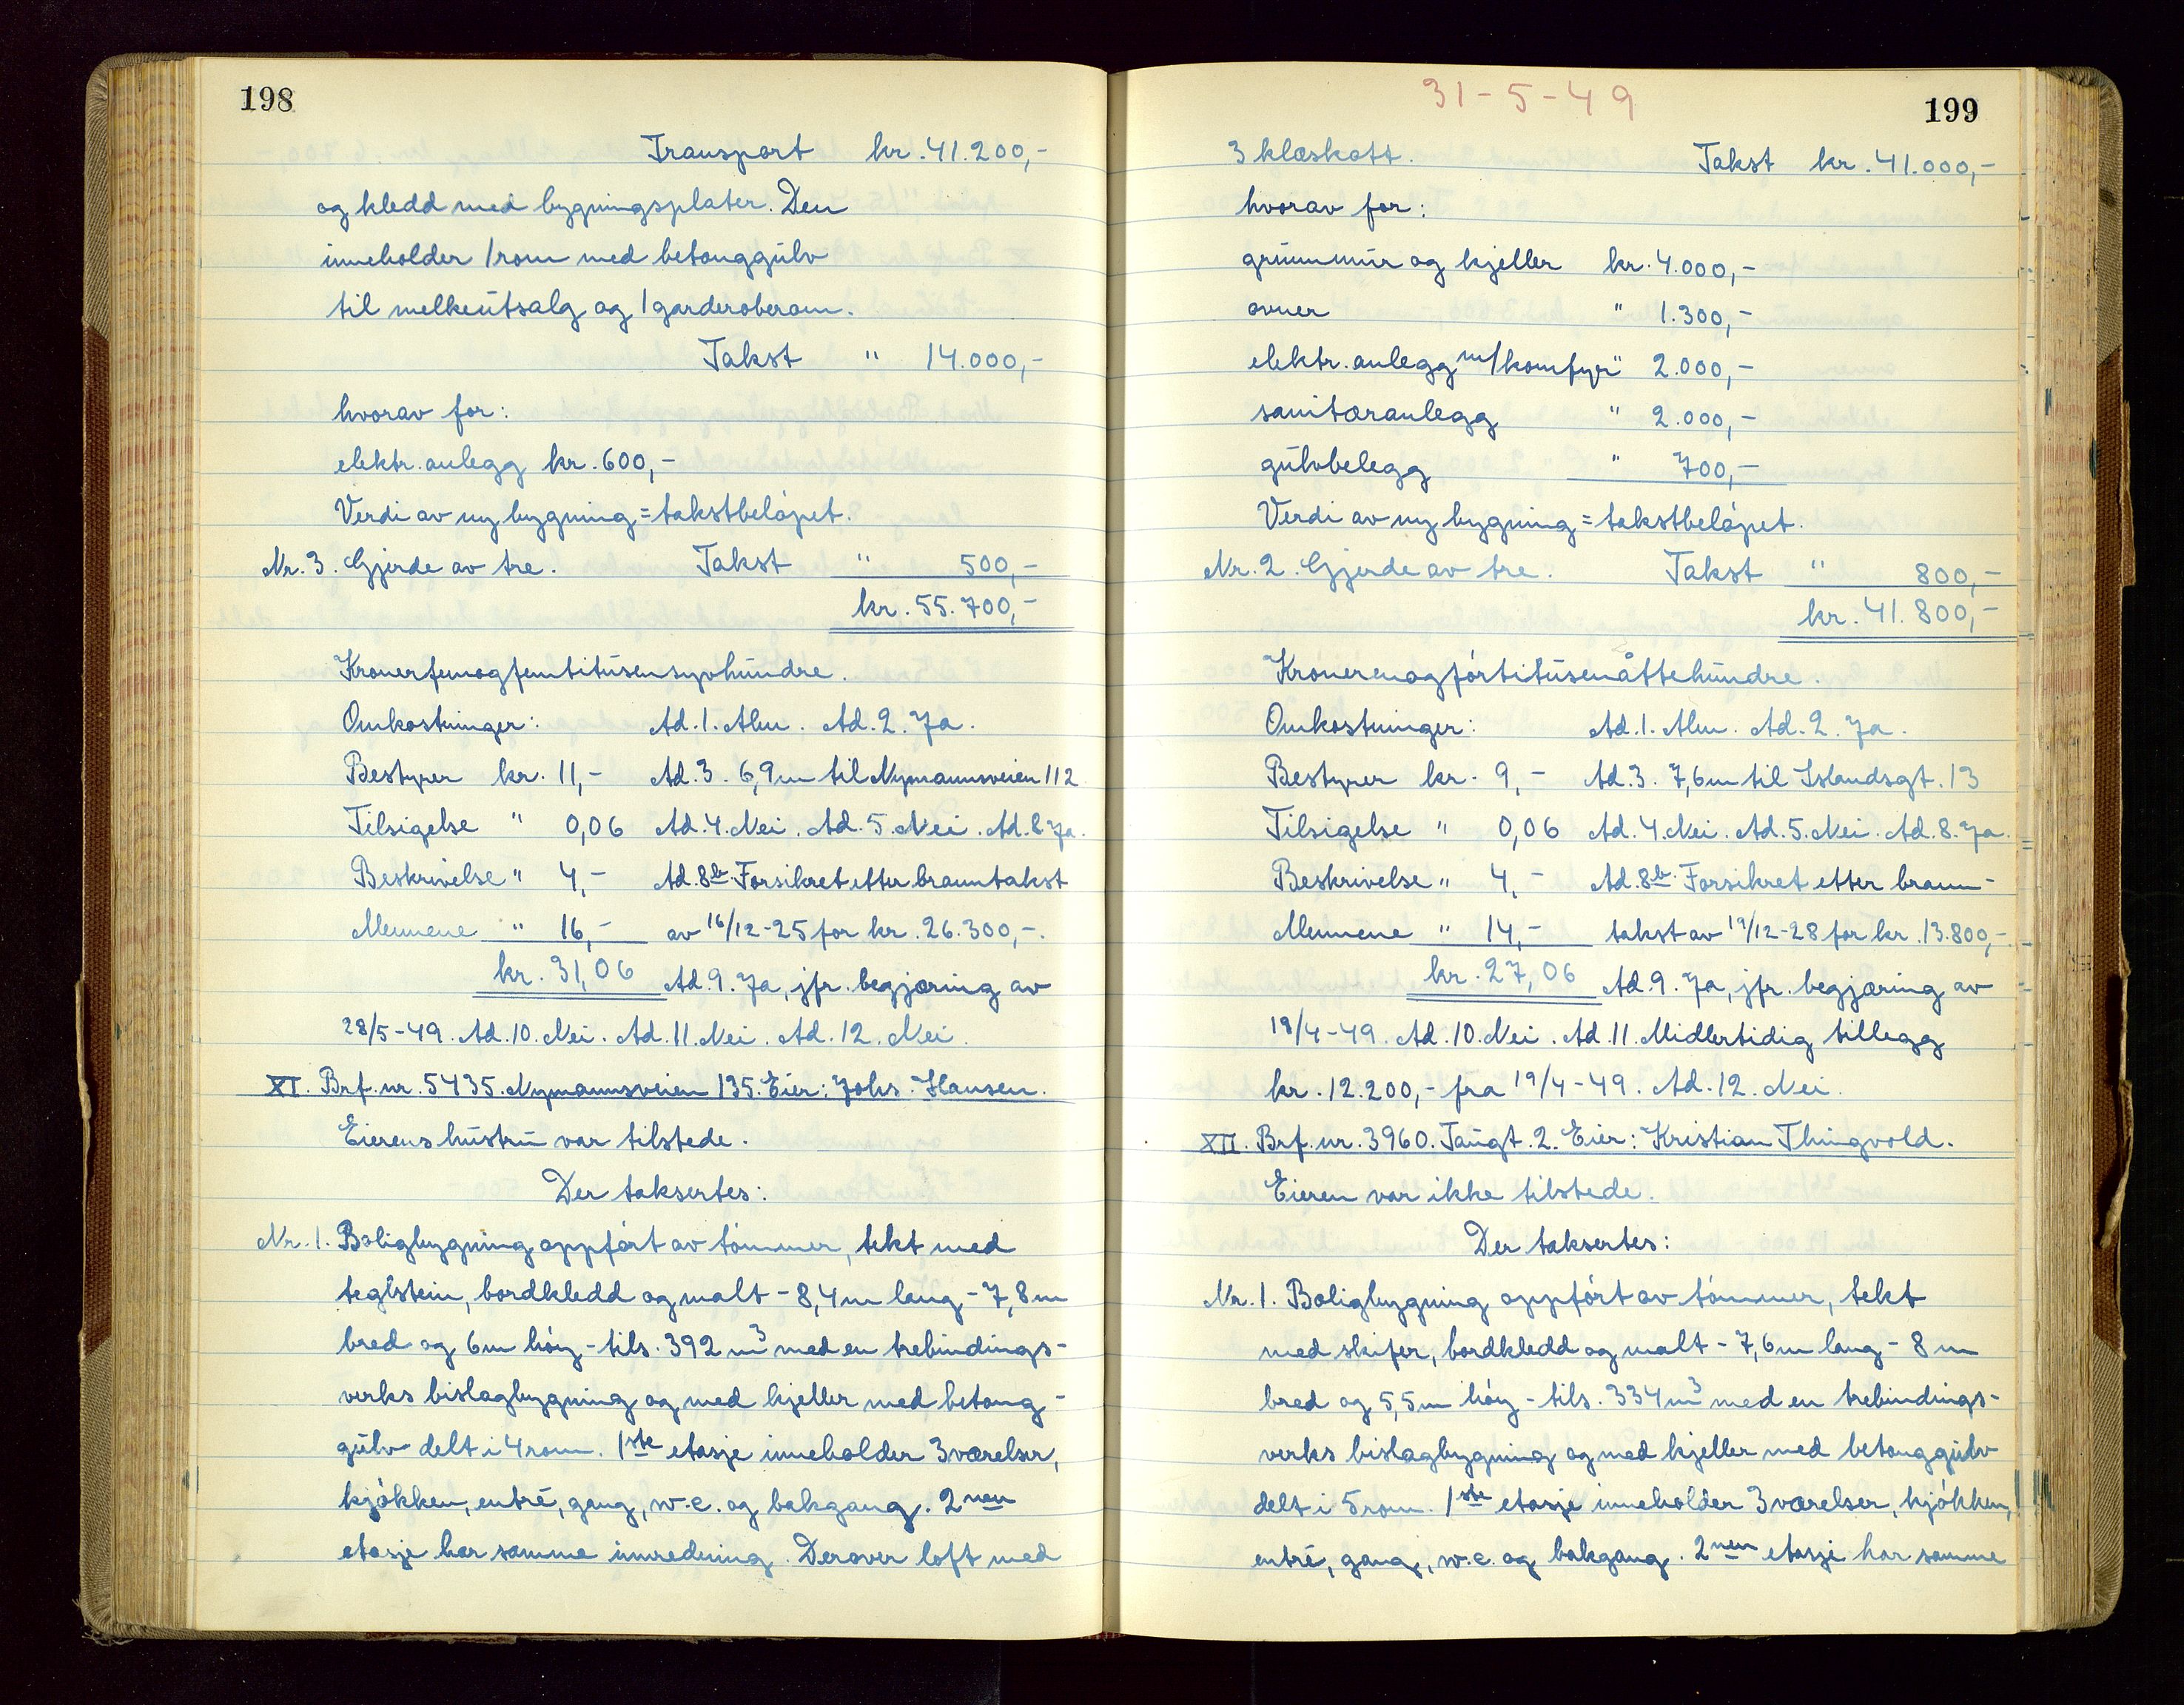 198
Transport kr. 41.200,-
og kledd med bygningsplater. Den
inneholder 1 rom med betonggulv
til melkeutsalg og 1 garderoberom.
Takst " 14.000,-
hvorav for:
elektr. anlegg kr. 600,-
Verdi av ny bygning = takstbeløpet.
Nr. 3. Gjerde av tre. Takst " 500,-
kr. 55.700,-
Kronerfemogfemtitusensyvhundre.
Omkostninger: Ad. 1. Alm. Ad. 2. Ja.
Bestyrer kr. 11,- Ad. 3. 6,9 m til Nymannsveien 112
Tilsigelse " 0,06 Ad. 4. Nei. Ad. 5. Nei. Ad. 8. Ja.
Beskrivelse " 4,- Ad. 8b. Forsikret etter branntakst
Mennene " 16,- av 16/12-25 for kr. 26.300,-.
kr. 31,06 Ad. 9. Ja, jfr. begjæring av
28/5-49. Ad. 10. Nei. Ad. 11. Nei. Ad. 12. Nei.
XI. Brf. nr. 5435. Nymannsveien 135. Eier: Johs. Hansen.
Eierens hustru var tilstede.
Der taksertes:
Nr. 1. Boligbygning oppført av tømmer, tekt med
teglstein, bordkledd og malt - 8,4 m lang - 7,8 m
bred og 6 m høy - tils. 392 m³ med en trebindings-
verks bislagbygning og med kjeller med betong-
gulv delt i 4 rom. 1ste etasje inneholder 3 værelser,
kjøkken, entré, gang, w.c. og bakgang. 2nen
etasje har samme innredning. Derover loft med
31-5-49
199
3 klæskott. Takst kr. 41.000,-
hvorav for:
grunnmur og kjeller kr. 4.000,-
ovner " 1.300,-
elektr. anlegg m/komfyr " 2.000,-
sanitæranlegg " 2.000,-
gulvbelegg " 700,-
Verdi av ny bygning = takstbeløpet.
Nr. 2. Gjerde av tre. Takst " 800,-
kr. 41.800,-
Kronerenogførtitusenåttehundre.
Omkostninger: Ad. 1. Alm. Ad. 2. Ja.
Bestyrer kr. 9,- Ad. 3. 7,6 m til Islandsgt. 13
Tilsigelse " 0,06 Ad. 4. Nei. Ad. 5. Nei. Ad. 8. Ja.
Beskrivelse " 4,- Ad. 8b. Forsikret etter brann-
Mennene " 14,- takst av 19/12-28 for kr. 13.800,-.
kr. 27,06 Ad. 9. Ja, jfr. begjæring av
19/4-49. Ad. 10. Nei. Ad. 11. Midlertidig tillegg
kr. 12.200,- fra 19/4-49. Ad. 12. Nei.
XII. Brf. nr. 3960. Taugt. 2. Eier: Kristian Thingvold.
Eieren var ikke tilstede.
Der taksertes:
Nr. 1. Boligbygning oppført av tømmer, tekt
med skifer, bordkledd og malt - 7,6 m lang - 8 m
bred og 5,5 m høy - tils. 334 m³ med en trebindings-
verks bislagbygning og med kjeller med betonggulv
delt i 5 rom. 1ste etasje inneholder 3 værelser, kjøkken,
entré, gang, w.c. og bakgang. 2nen etasje har samme